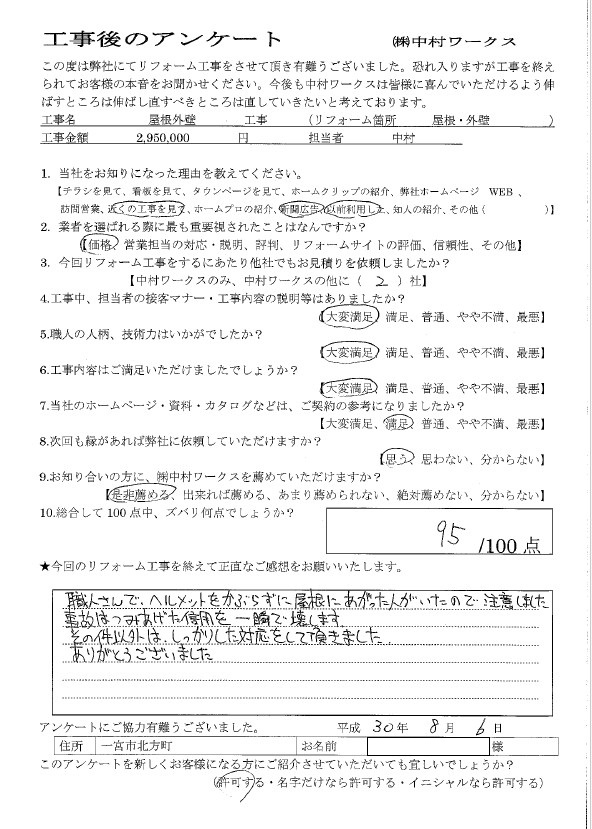 工事後のアンケート ㈱中村ワークス
この度は弊社にてリフォーム工事をさせて頂き有難うございました。恐れ入りますが工事を終え
られてお客様の本音をお聞かせください。今後も中村ワークスは皆様に喜んでいただけるよう伸
ばすところは伸ばし直すべきところは直していきたいと考えております。
工事名 屋根外壁 工事 (リフォーム箇所 屋根・外壁 )
工事金額 2,950,000 円 担当者 中村
1．当社をお知りになった理由を教えてください。
【チラシを見て、看板を見て、タウンページを見て、ホームクリップの紹介、弊社ホームページ WEB、
訪問営業、近くの工事を見て、ホームプロの紹介、新聞広告、以前利用した、知人の紹介、その他（ ）】
2．業者を選ばれる際に最も重要視されたことはなんですか？
【価格、営業担当の対応・説明、評判、リフォームサイトの評価、信頼性、その他】
3．今回リフォーム工事をするにあたり他社でもお見積りを依頼しましたか？
【中村ワークスのみ、中村ワークスの他に（ 2 ）社】
4.工事中、担当者の接客マナー・工事内容の説明等はありましたか？
【大変満足、満足、普通、やや不満、最悪】
5.職人の人柄、技術力はいかがでしたか？
【大変満足、満足、普通、やや不満、最悪】
6.工事内容はご満足いただけましたでしょうか？
【大変満足、満足、普通、やや不満、最悪】
7.当社のホームページ・資料・カタログなどは、ご契約の参考になりましたか？
【大変満足、満足、普通、やや不満、最悪】
8.次回も縁があれば弊社に依頼していただけますか？
【思う、思わない、分からない】
9.お知り合いの方に、㈱中村ワークスを薦めていただけますか？
【是非薦める、出来れば薦める、あまり薦められない、絶対薦めない、分からない】
10.総合して100点中、ズバリ何点でしょうか？
95 /100点
★今回のリフォーム工事を終えて正直なご感想をお願いいたします。
職人さんで、ヘルメットをかぶらずに屋根にあがった人がいたので注意しました
事故はつみあげた信用を一瞬で壊します。
その件以外は、しっかりした対応をして頂きました。
ありがとうございました
アンケートにご協力有難うございました。 平成 30年 8月 6日
住所 一宮市北方町 お名前 様
このアンケートを新しくお客様になる方にご紹介させていただいても宜しいでしょうか？
（許可する・名字だけなら許可する・イニシャルなら許可する）